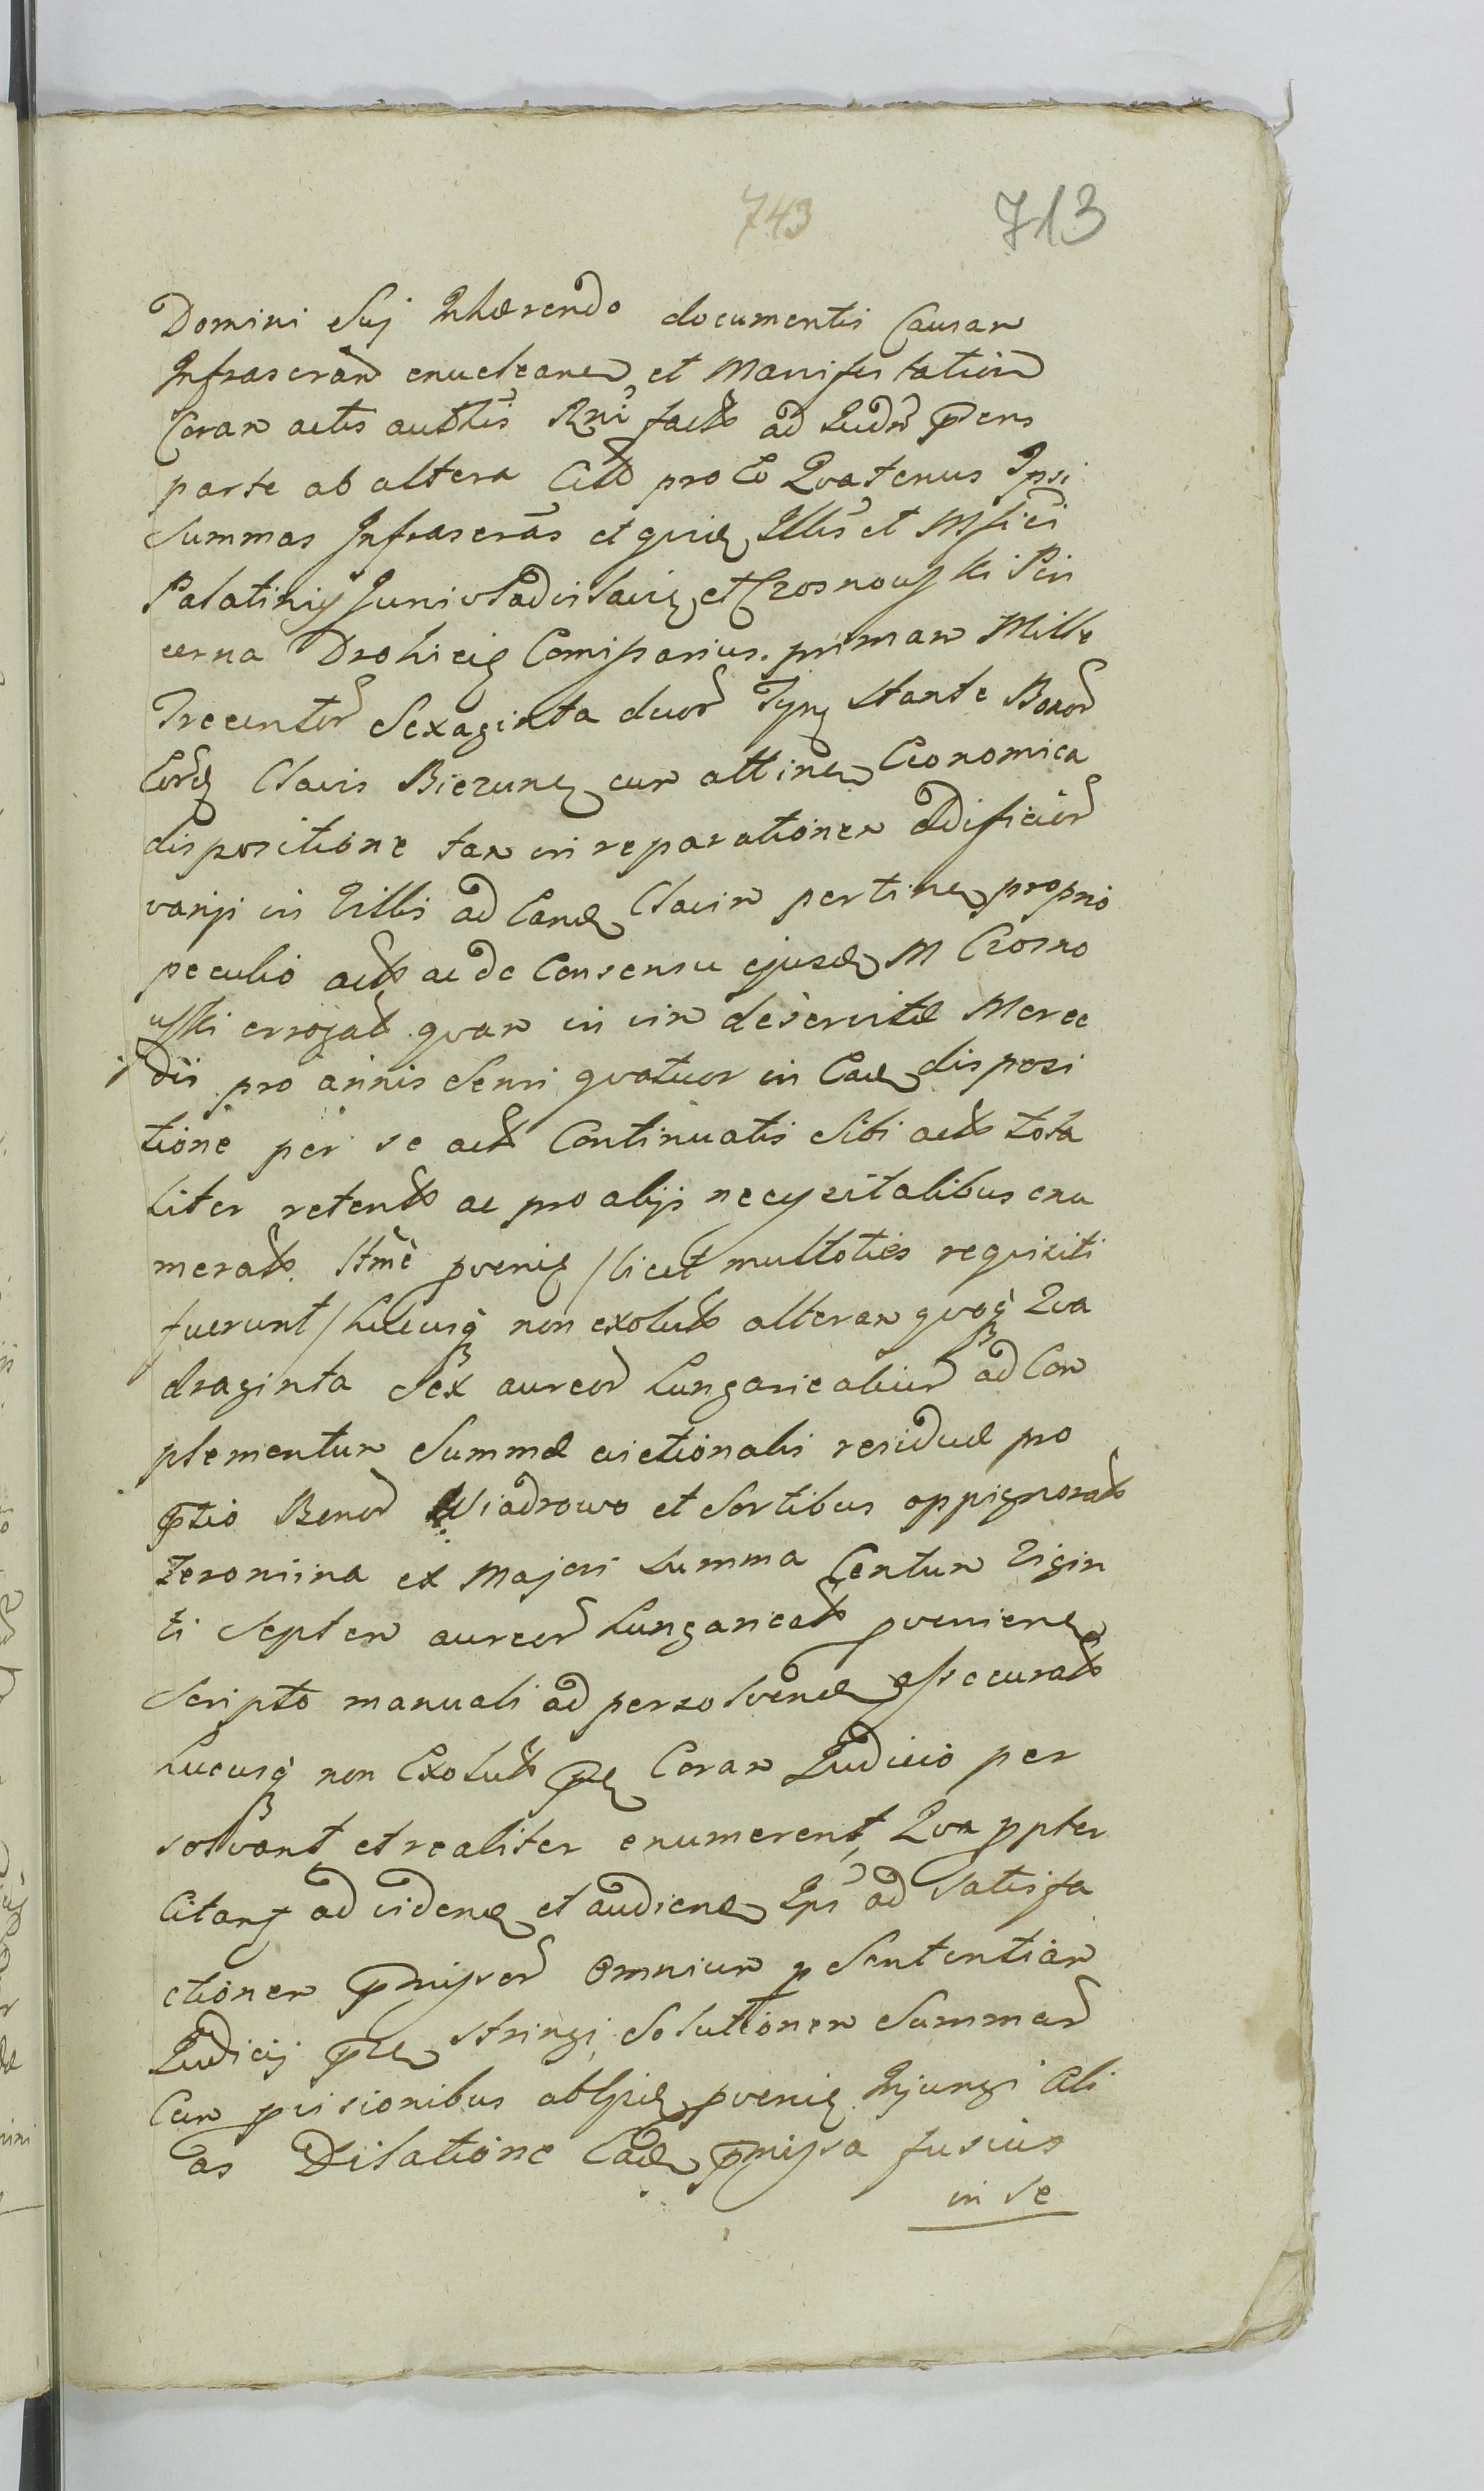 743 713
Domini Suj Inhærendo documentis Causam
Infrascram enucleanen et Manifestation
Coram actis authcis Rni factæ ad Iudm pens
parte ab altera Citt pro Eo Quatenus Ipsi
Summas Infrascras et quid Illis et Mfici
Palatini Junivladislavien et Czosnowski Pin
cerna Drohicien Comissarius primam Mille
Trecentor Sexaginta duor Tynf stante Bonor
Eord Clavis Biezunen cum attinen Economica
dispositione tam in reparationem ædificior
varij in Villis ad Eand Clavim pertinen proprio
peculio act ac de Consensu ejusd M Czosno
wski errogat quam in vim deservitæ Merce
dis pro annis Sensi quatuor in Ead disposi
tione per se act Continuatis Sibi act tota
liter retent ac pro alijs necessitatibus enu
merat. Itme proven /licet multoties requisiti
fuerunt/ hucusq non exolut alteram quoq Qua
draginta Sex aureor hungaricalium ad Com
plementum Summæ evictionalis residuæ pro
ptio Bonor Wiadrowo et Sortibus oppignorat
Zeromina ex Majori Summa Centum Vigin
ti Septem aureor hungaricat provenien
Scripto manuali ad persolvend assecurat
hucusq non Exolut Coram Iudicio per
solvant et realiter enumerent, Qua ppter
Citant ad vidend et audiend Ips ad satisfa
ctionem pmissor Omnium p Sententiam
Iudicij pten stringi, Solutionem Summar
Cum pvisionibus ab Ipis proven Injungi Ali
as Dilatione Ead pmissa fusius
in se